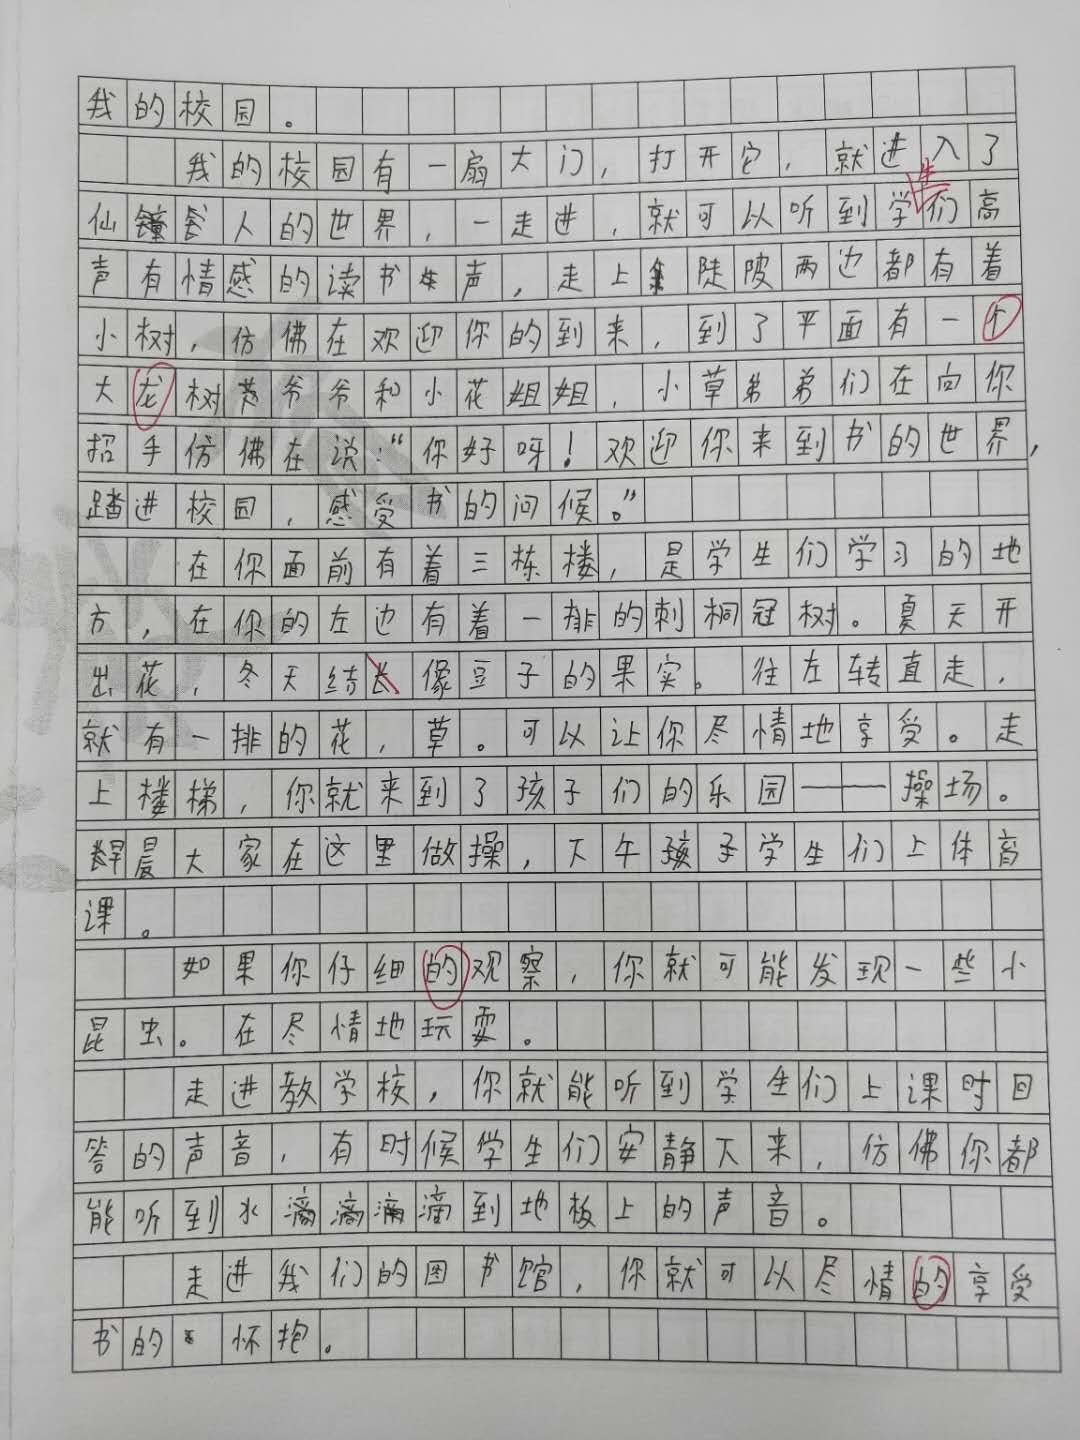 我的校园。
我的校园有一扇大门，打开它，就进入了
仙人的世界，一走进，就可以听到学生们高
声有情感的读书声，走上陡陂两边都有着
小树，仿佛在欢迎你的到来，到了平面有一个
大龙树爷爷和小花姐姐，小草弟弟们在向你
招手仿佛在说：“你好呀！欢迎你来到书的世界，
踏进校园，感受书的问候。”
在你面前有着三栋楼，是学生们学习的地
方，在你的左边有着一排的刺桐冠树。夏天开
出花，冬天结长像豆子的果实。往左转直走，
就有一排的花，草。可以让你尽情地享受。走
上楼梯，你就来到了孩子们的乐园——操场。
早晨大家在这里做操，下午孩子学生们上体育
课。
如果你仔细的观察，你就可能发现一些小
昆虫。在尽情地玩耍。
走进教学校，你就能听到学生们上课时回
答的声音，有时候学生们安静下来，仿佛你都
能听到水滴滴滴滴到地板上的声音。
走进我们的图书馆，你就可以尽情的享受
书的怀抱。